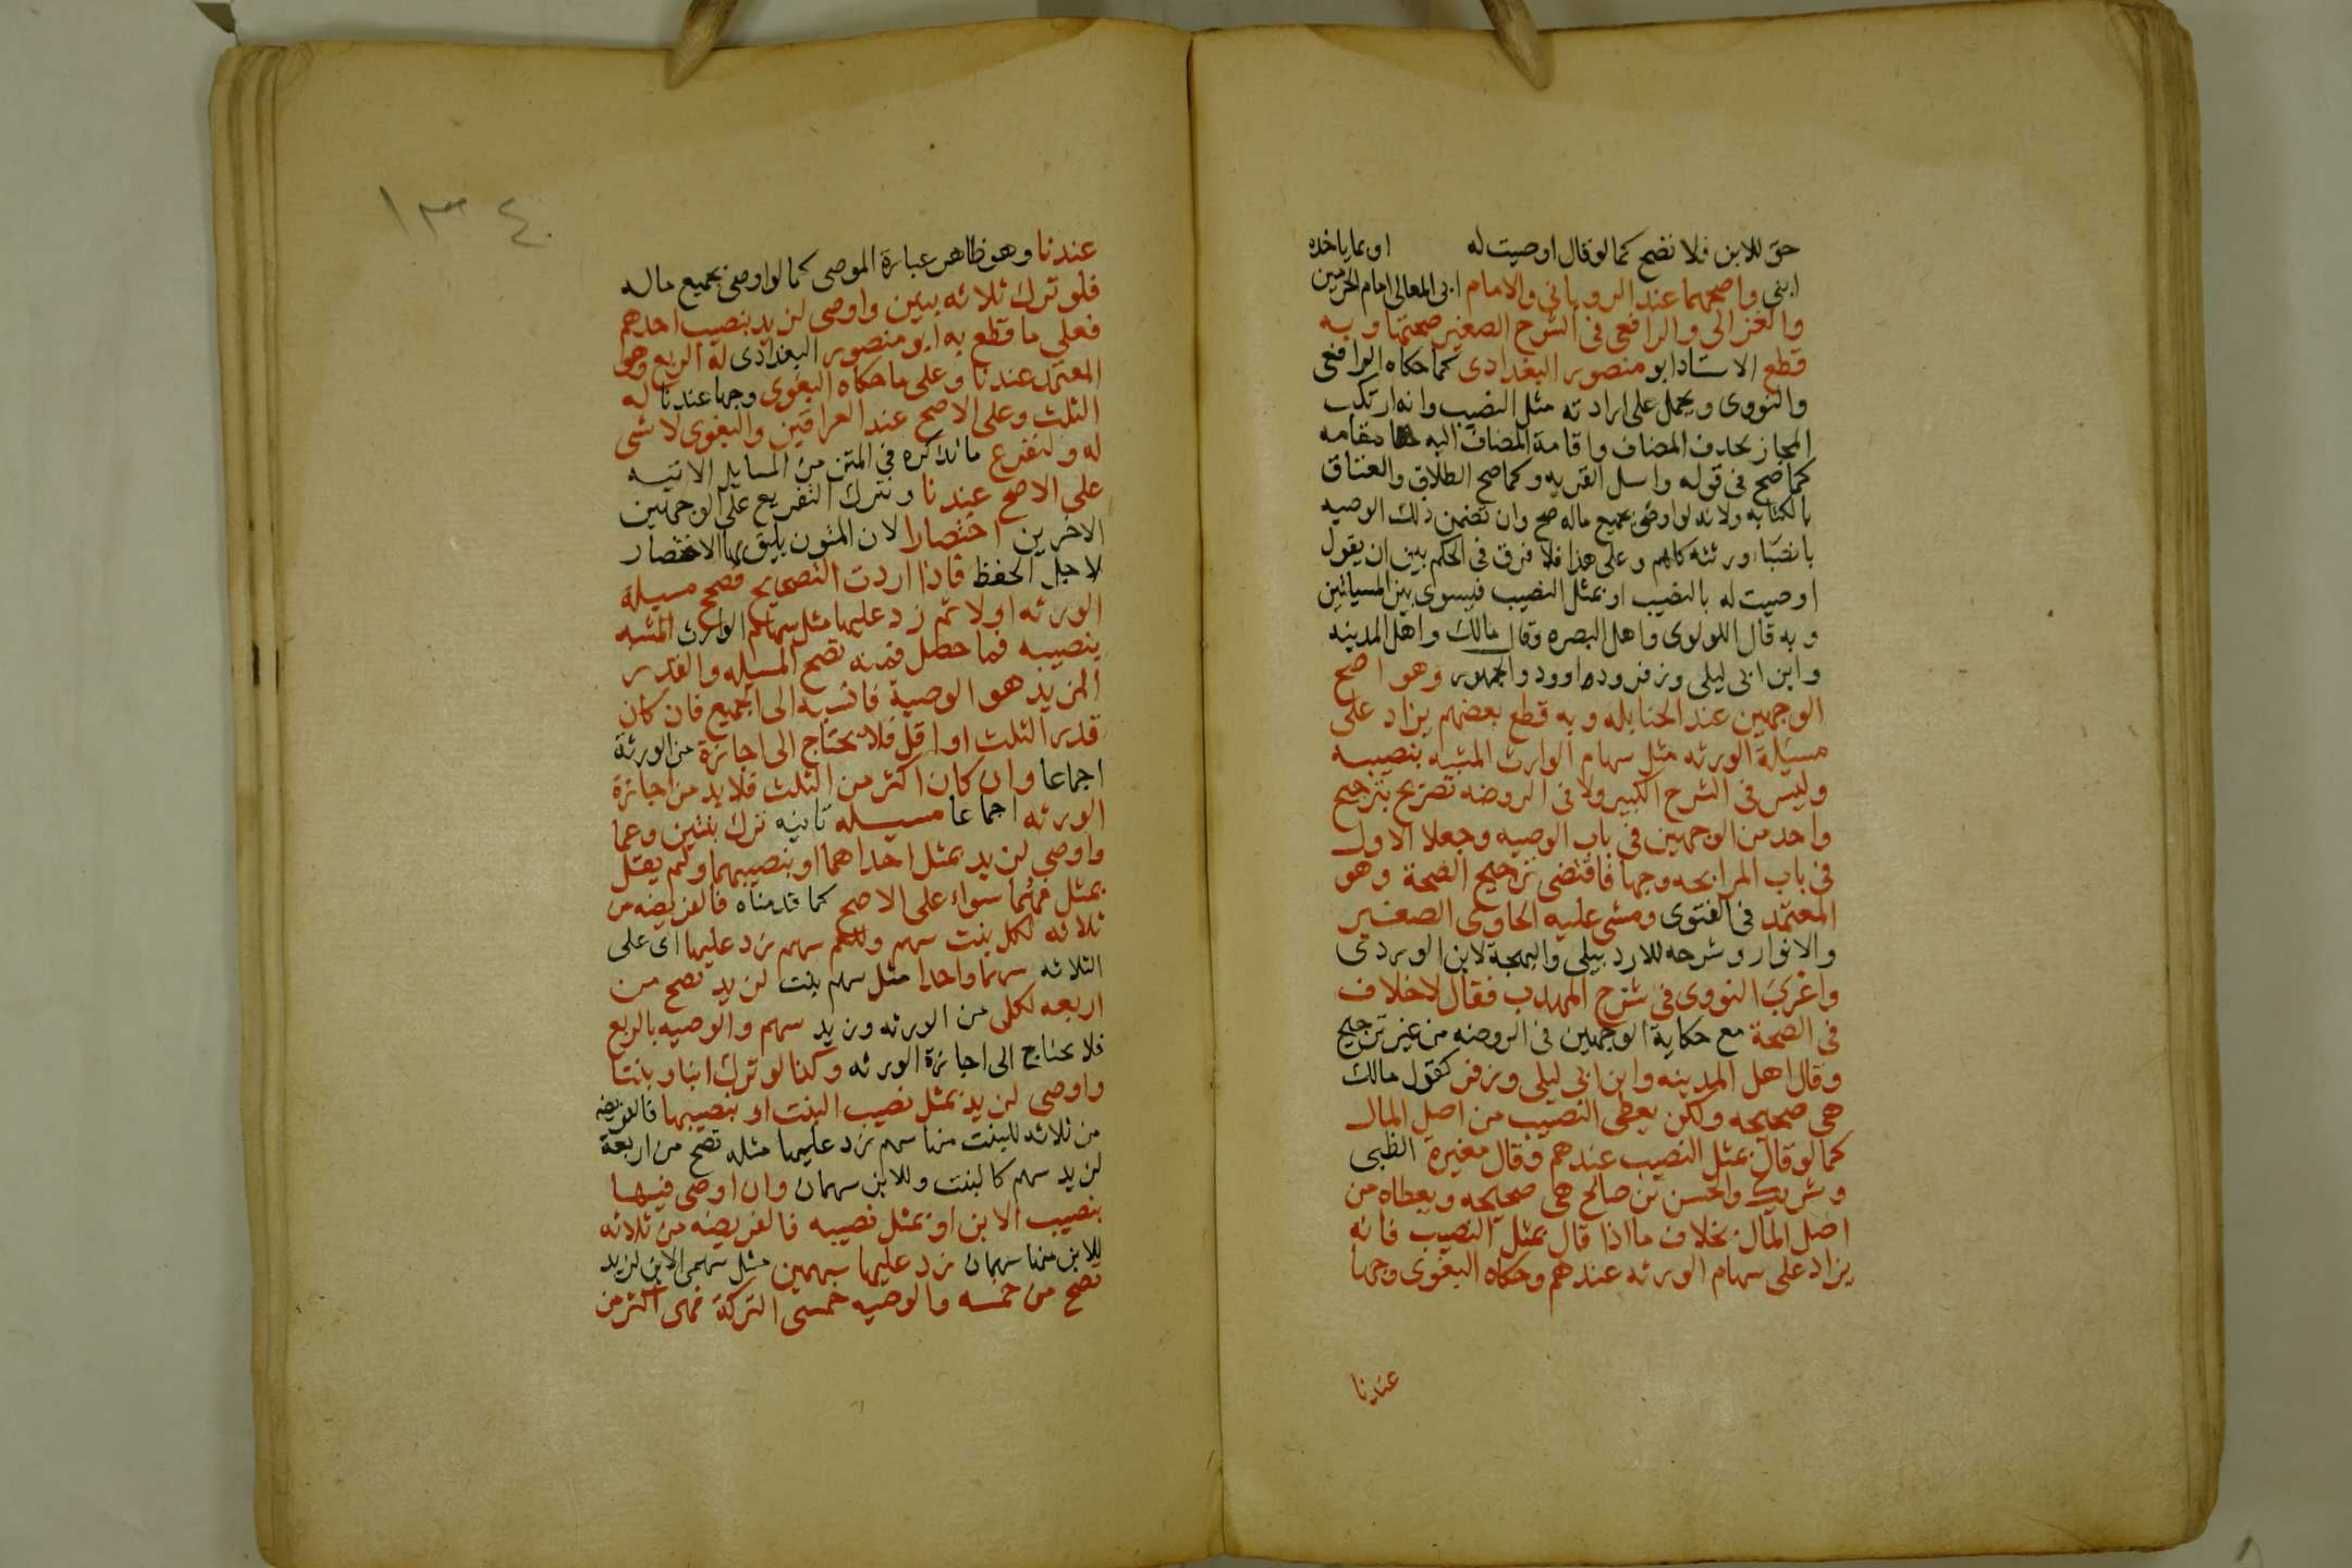 حق للابن فلا تصح كما لو قال اوصيت له او بما ياخده
ابني واصحهما عند الروياني والامام ابى المعالى امام الحرمين
والغزالى والرافعى فى الشرح الصغير صحتها وبه
قطع الاستاد ابو منصور البغدادى كما حكاه الرافعى
والنووى ويحمل على ارادته مثل النصيب وانه ارتكب
المجاز بحدف المضاف واقامة المضاف اليه مقامه
كما صح فى قوله واسل القريه وكما صح الطلاق والعتاق
بالكنايه ولانه لو اوصى بجميع ماله صح وان تضمن ذلك الوصيه
بانصبا ورثته كلهم وعلى هذا فلا فرق فى الحكم بين ان يقول
اوصيت له بالنصيب او بمثل النصيب فيسوى بين المسيلتين
وبه قال اللولوى واهل البصره وقال مالك واهل المدينه
وابن ابى ليلى وزفر وداوود والجمهور وهو اصح
الوجهين عند الحنابله وبه قطع بعضهم يزاد على
مسيلة الورثه مثل سهام الوارث المشبه بنصيبه
وليس فى الشرح الكبير ولا فى الروضه تصريح بترجيح
واحد من الوجهين فى باب الوصيه وجعلا الاول
فى باب المرابحه وجها فاقتضى ترجيح الصحة وهو
المعتمد فى الفتوى ومشى عليه الحاوى الصغير
والانوار وشرحه للاردبيلى والبهجة لابن الوردى
واغرب النووى فى شرح المهدب فقال لاخلاف
فى الصحة مع حكاية الوجهين فى الروضه من غير ترجيح
وقال اهل المدينه وابن ابى ليلى وزفر كقول مالك
هى صحيحه ولكن يعطى النصيب من اصل المال
كما لو قال بمثل النصيب عندهم وقال مغيرة الظبى
وشريك والحسن بن صالح هى صحيحه ويعطاه من
اصل المال بخلاف ما اذا قال بمثل النصيب فانه
يزاد على سهام الورثه عندهم وحكاه البغوى وجها
عندنا
١٣٤
عندنا وهو ظاهر عبارة الموصى كما لو اوصى بجميع ماله
فلو ترك ثلاثه بنين واوصى لزيد بنصيب احدهم
فعلى ما قطع به ابو منصور البغدادى له الربع وهو
المعتمد عندنا وعلى ما حكاه البغوى وجها عندنا له
الثلث وعلى الاصح عند العراقين والبغوى لا شى
له ولنفرع ما نذكره فى المتن من المسايل الاتيه
على الاصح عندنا ونترك التفريع على الوجهين
الاخرين اختصارا لان المتون يليق بها الاختصار
لاجل الحفظ فاذا اردت التصحيح فصحح مسيلة
الورثه اولا ثم زد عليها مثل سهام الوارث المشبه
بنصيبه فما حصل فمنه تصح المسيله والقدر
المزيد هو الوصية فانسبه الى الجميع فان كان
قدر الثلث او اقل فلا يحتاج الى اجازة من الورثة
اجماعا وان كان اكثر من الثلث فلا بد من اجازة
الورثه اجماعا مسيله ثانيه ترك بنتين وعما
واوصى لزيد بمثل احداهما او بنصيبهما ولم يقل
بمثل فهما سواء على الاصح كما قدمناه فالفريضه من
ثلاثه لكل بنت سهم وللعم سهم زد عليها اى على
الثلاثه سهما واحدا مثل سهم بنت لزيد تصح من
اربعه لكل من الورثه وزيد سهم والوصيه بالربع
فلا يحتاج الى اجازة الورثه وكذا لو ترك ابنا وبنتا
واوصى لزيد بمثل نصيب البنت او بنصيبها فالفريضه
من ثلاثه للبنت منها سهم زد عليها مثله تصح من اربعة
لزيد سهم كالبنت وللابن سهمان وان اوصى فيها
بنصيب الابن او بمثل نصيبه فالفريضه من ثلاثه
للابن منها سهمان زد عليها سهمين مثل سهمى الابن لزيد
تصح من خمسه والوصيه خمسى التركة فهى اكثر من